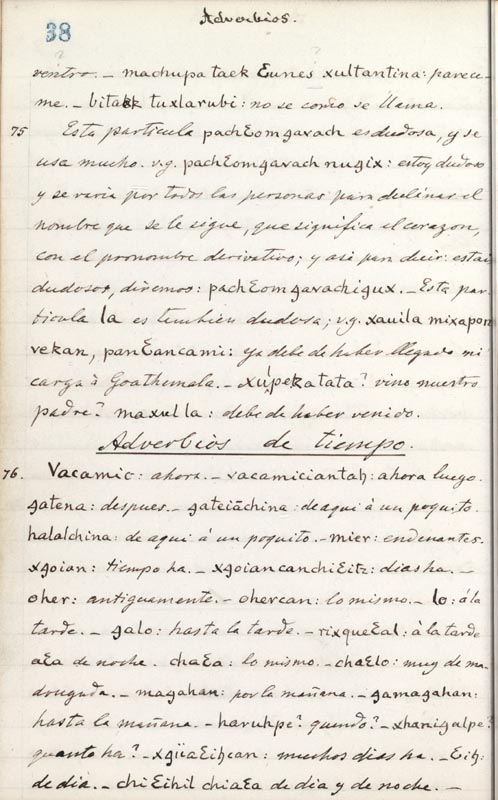 Adverbios.
38
ventro. – machupa taek Ɛunes xultantina: parece-
me. – bitakk tuxlarubi: no se como se llama.
75 Esta particula pachƐomgavach es dudosa, y se
usa mucho. v.g. pachƐomgavach nugix: estoy dudoso
y se varia por todas las personas para declinar el
nombre que se le sigue, que significa el corazon,
con el pronombre derivativo; y asi para decir: estais
dudosos, diremos: pachƐomgavachigux. – Esta par-
ticula la es tambien dudosa; v.g. xavila mixapon
vekan, panƐancami: ya debe de haber llegado mi
carga à Goathemala. – xúpekatata? vino nuestro
padre? maxulla: debe de haber venido.
Adverbios de tiempo.
76. Vacamic: ahora. – vacamiciantaɧ: ahora luego.
gatena: despues. – gateiāchina: de aqui à un poquito.
halalchina: de aqui à un poquito. – mier: endenantes.
xgoian: tiempo ha. – xgoiancanchiƐitz: dias ha. –
oher: antiguamente. – ohercan: lo mismo. – lo: à la
tarde. – galo: hasta la tarde. – rixqueƐal: à la tarde
aƐa de noche. chaƐa: lo mismo. – chaƐlo: muy de ma-
drugada. – magahan: por la mañana. – gamagahan:
hasta la mañana. – haruhpe? quando? – xhanigalpe?
quanto ha? – xgüaƐiɧcan: muchos dias ha. – Ɛiɧ:
de dia. – chiƐihil chiaƐa de dia y de noche. –